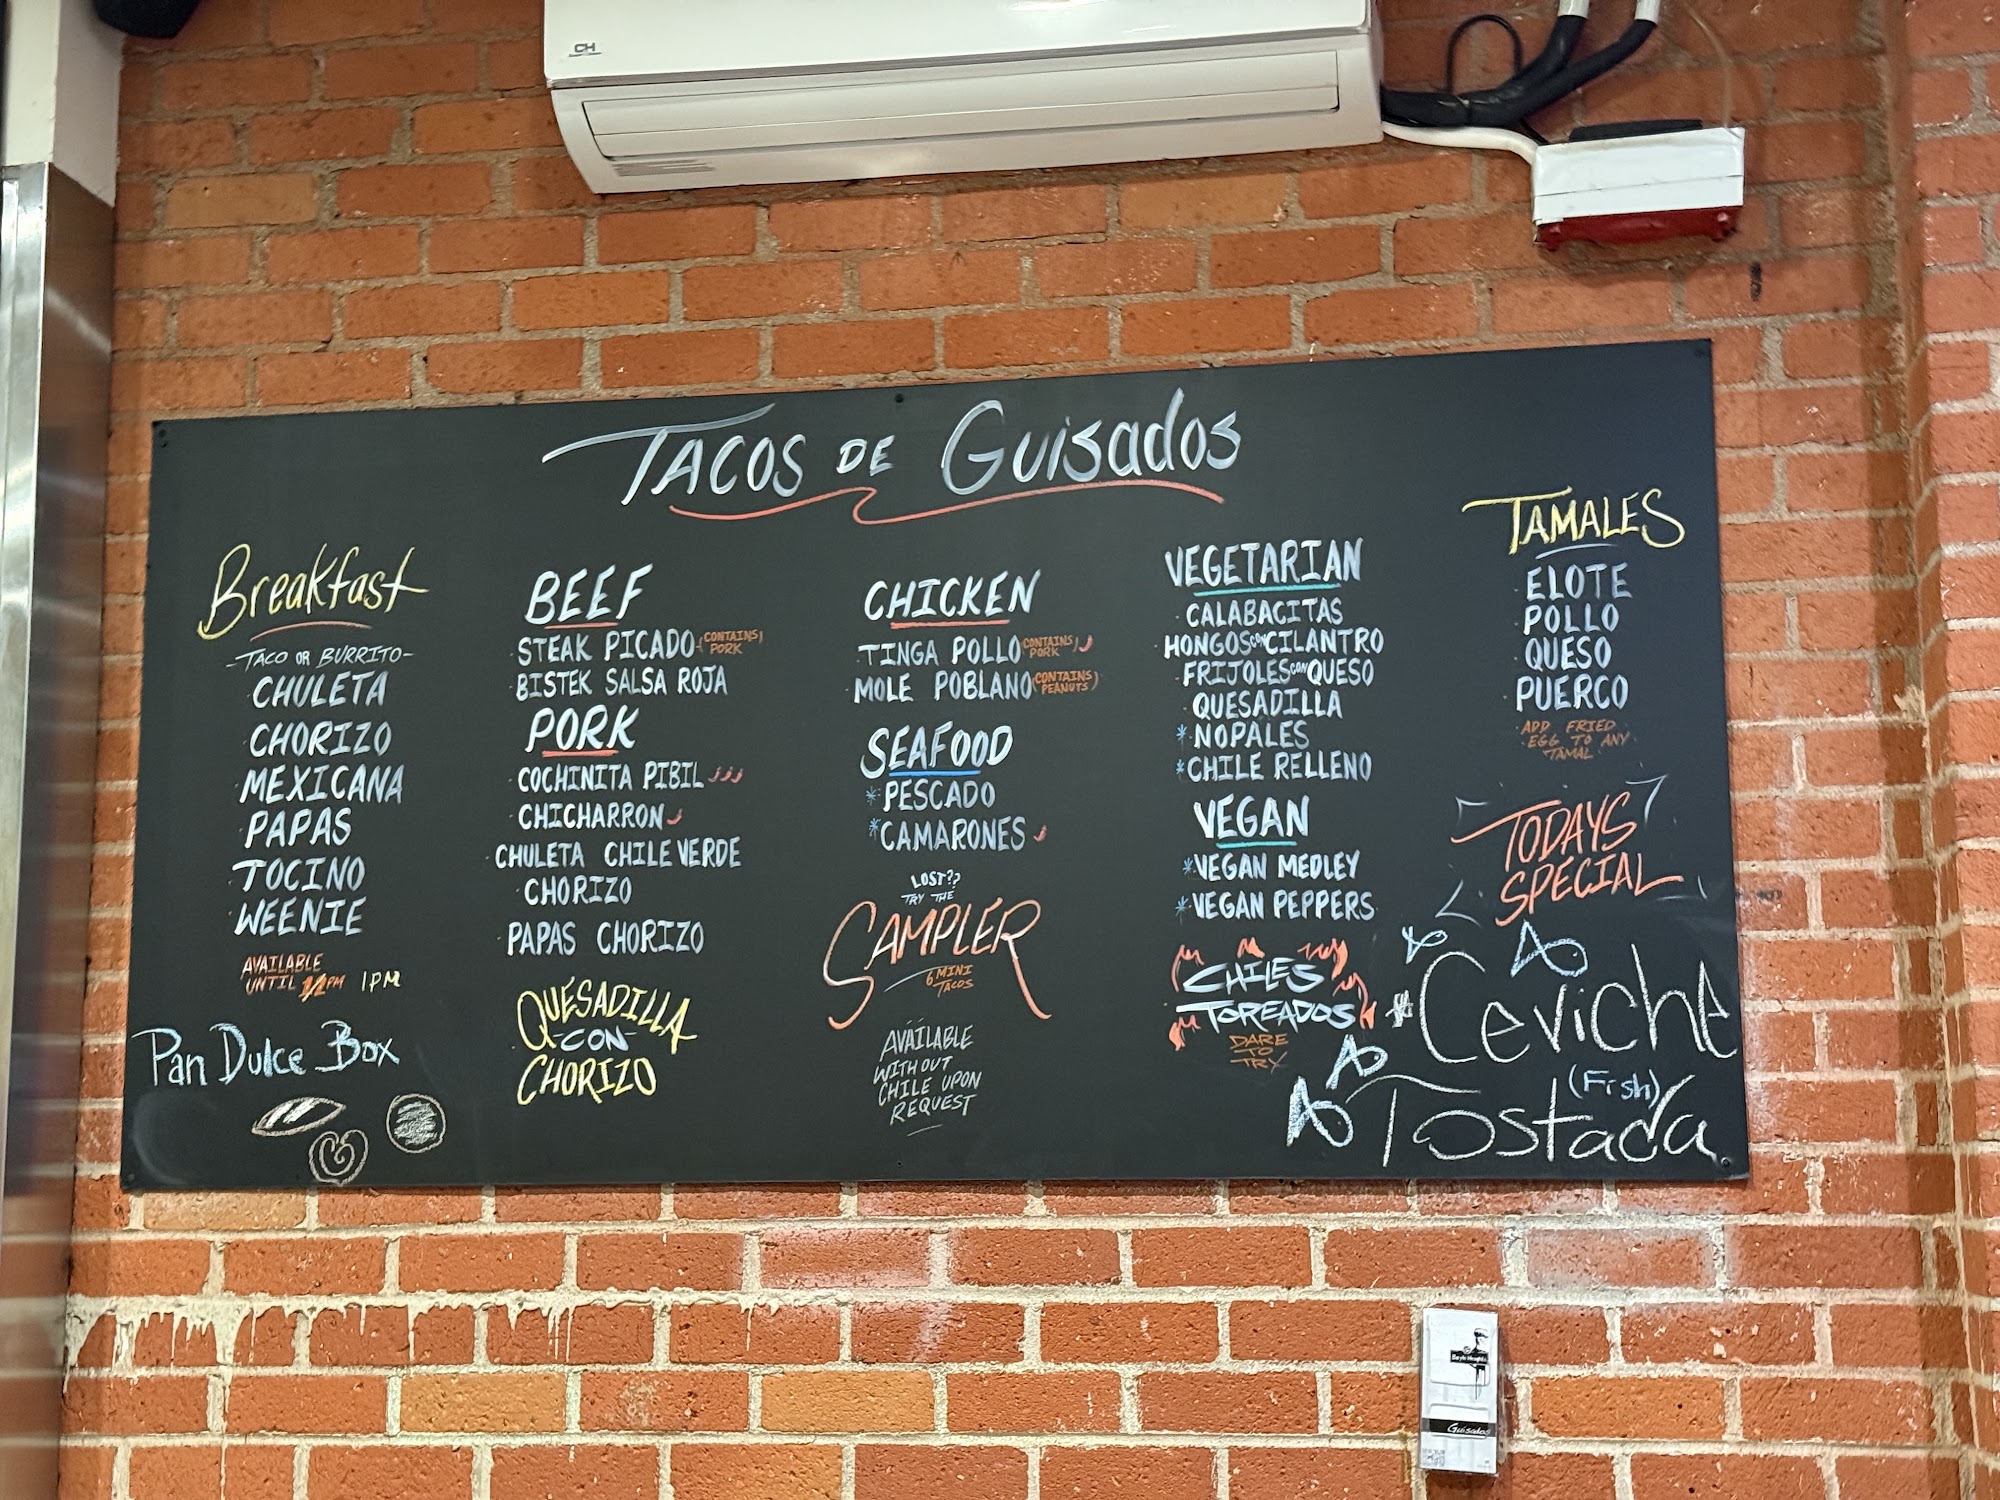 CH
TACOS DE GUISADOS
Breakfast
-TACO OR BURRITO-
CHULETA
CHORIZO
MEXICANA
PAPAS
TOCINO
WEENIE
AVAILABLE
UNTIL 12PM 1PM
Pan Dulce Box
BEEF
STEAK PICADO (CONTAINS PORK)
BISTEK SALSA ROJA
PORK
COCHINITA PIBIL
CHICHARRON
CHULETA CHILE VERDE
CHORIZO
PAPAS CHORIZO
QUESADILLA
-CON-
CHORIZO
CHICKEN
TINGA POLLO (CONTAINS PORK)
MOLE POBLANO (CONTAINS PEANUTS)
SEAFOOD
*PESCADO
*CAMARONES
LOST??
TRY THE
SAMPLER
6 MINI
TACOS
AVAILABLE
WITHOUT
CHILE UPON
REQUEST
VEGETARIAN
CALABACITAS
HONGOS CON CILANTRO
FRIJOLES CON QUESO
QUESADILLA
*NOPALES
*CHILE RELLENO
VEGAN
*VEGAN MEDLEY
*VEGAN PEPPERS
CHILES
TOREADOS
DARE
TO
TRY
TAMALES
ELOTE
POLLO
QUESO
PUERCO
ADD FRIED
EGG TO ANY
TAMAL
TODAYS
SPECIAL
*Ceviche
(Fish)
Tostada
Boyle Heights
Guisados